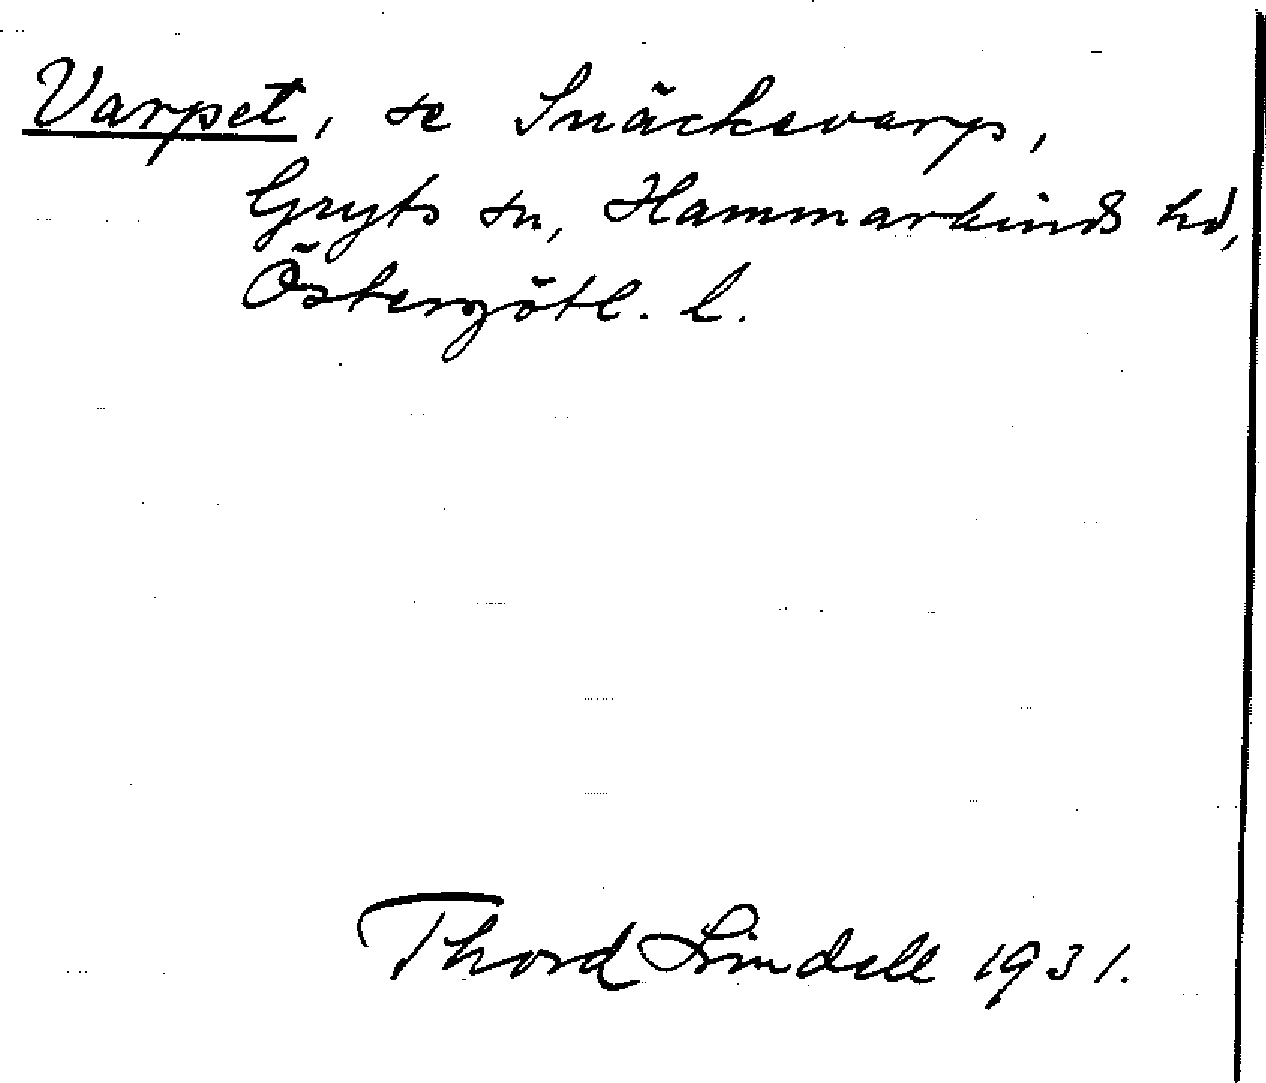 Varpet, se Snäckevarp,
Gryts sn, Hammarkinds hd,
Östergötl. l.
Thord Lindell 1931.